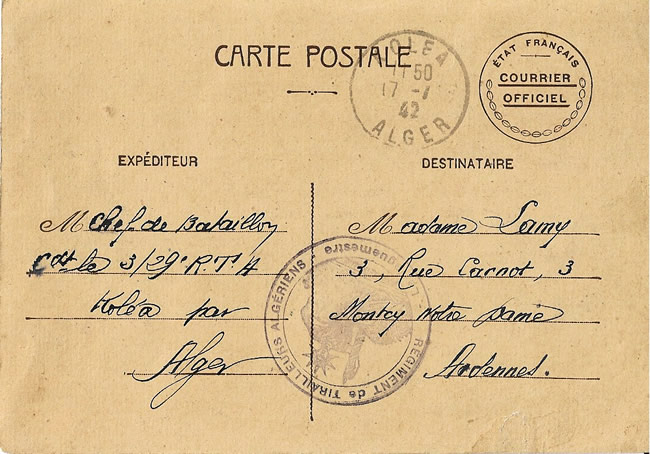 CARTE POSTALE
KOLEA
11 50
17 -
42
ALGER
ÉTAT FRANÇAIS
COURRIER
OFFICIEL
EXPÉDITEUR
M Chef de Bataillon
Cdt le 3/29e R.T.A
Koléa par
Alger
DESTINATAIRE
Madame Lamy
3, Rue Carnot, 3
Montcy Notre Dame
Ardennes.
RÉGIMENT de TIRAILLEURS ALGÉRIENS -
guemestre -